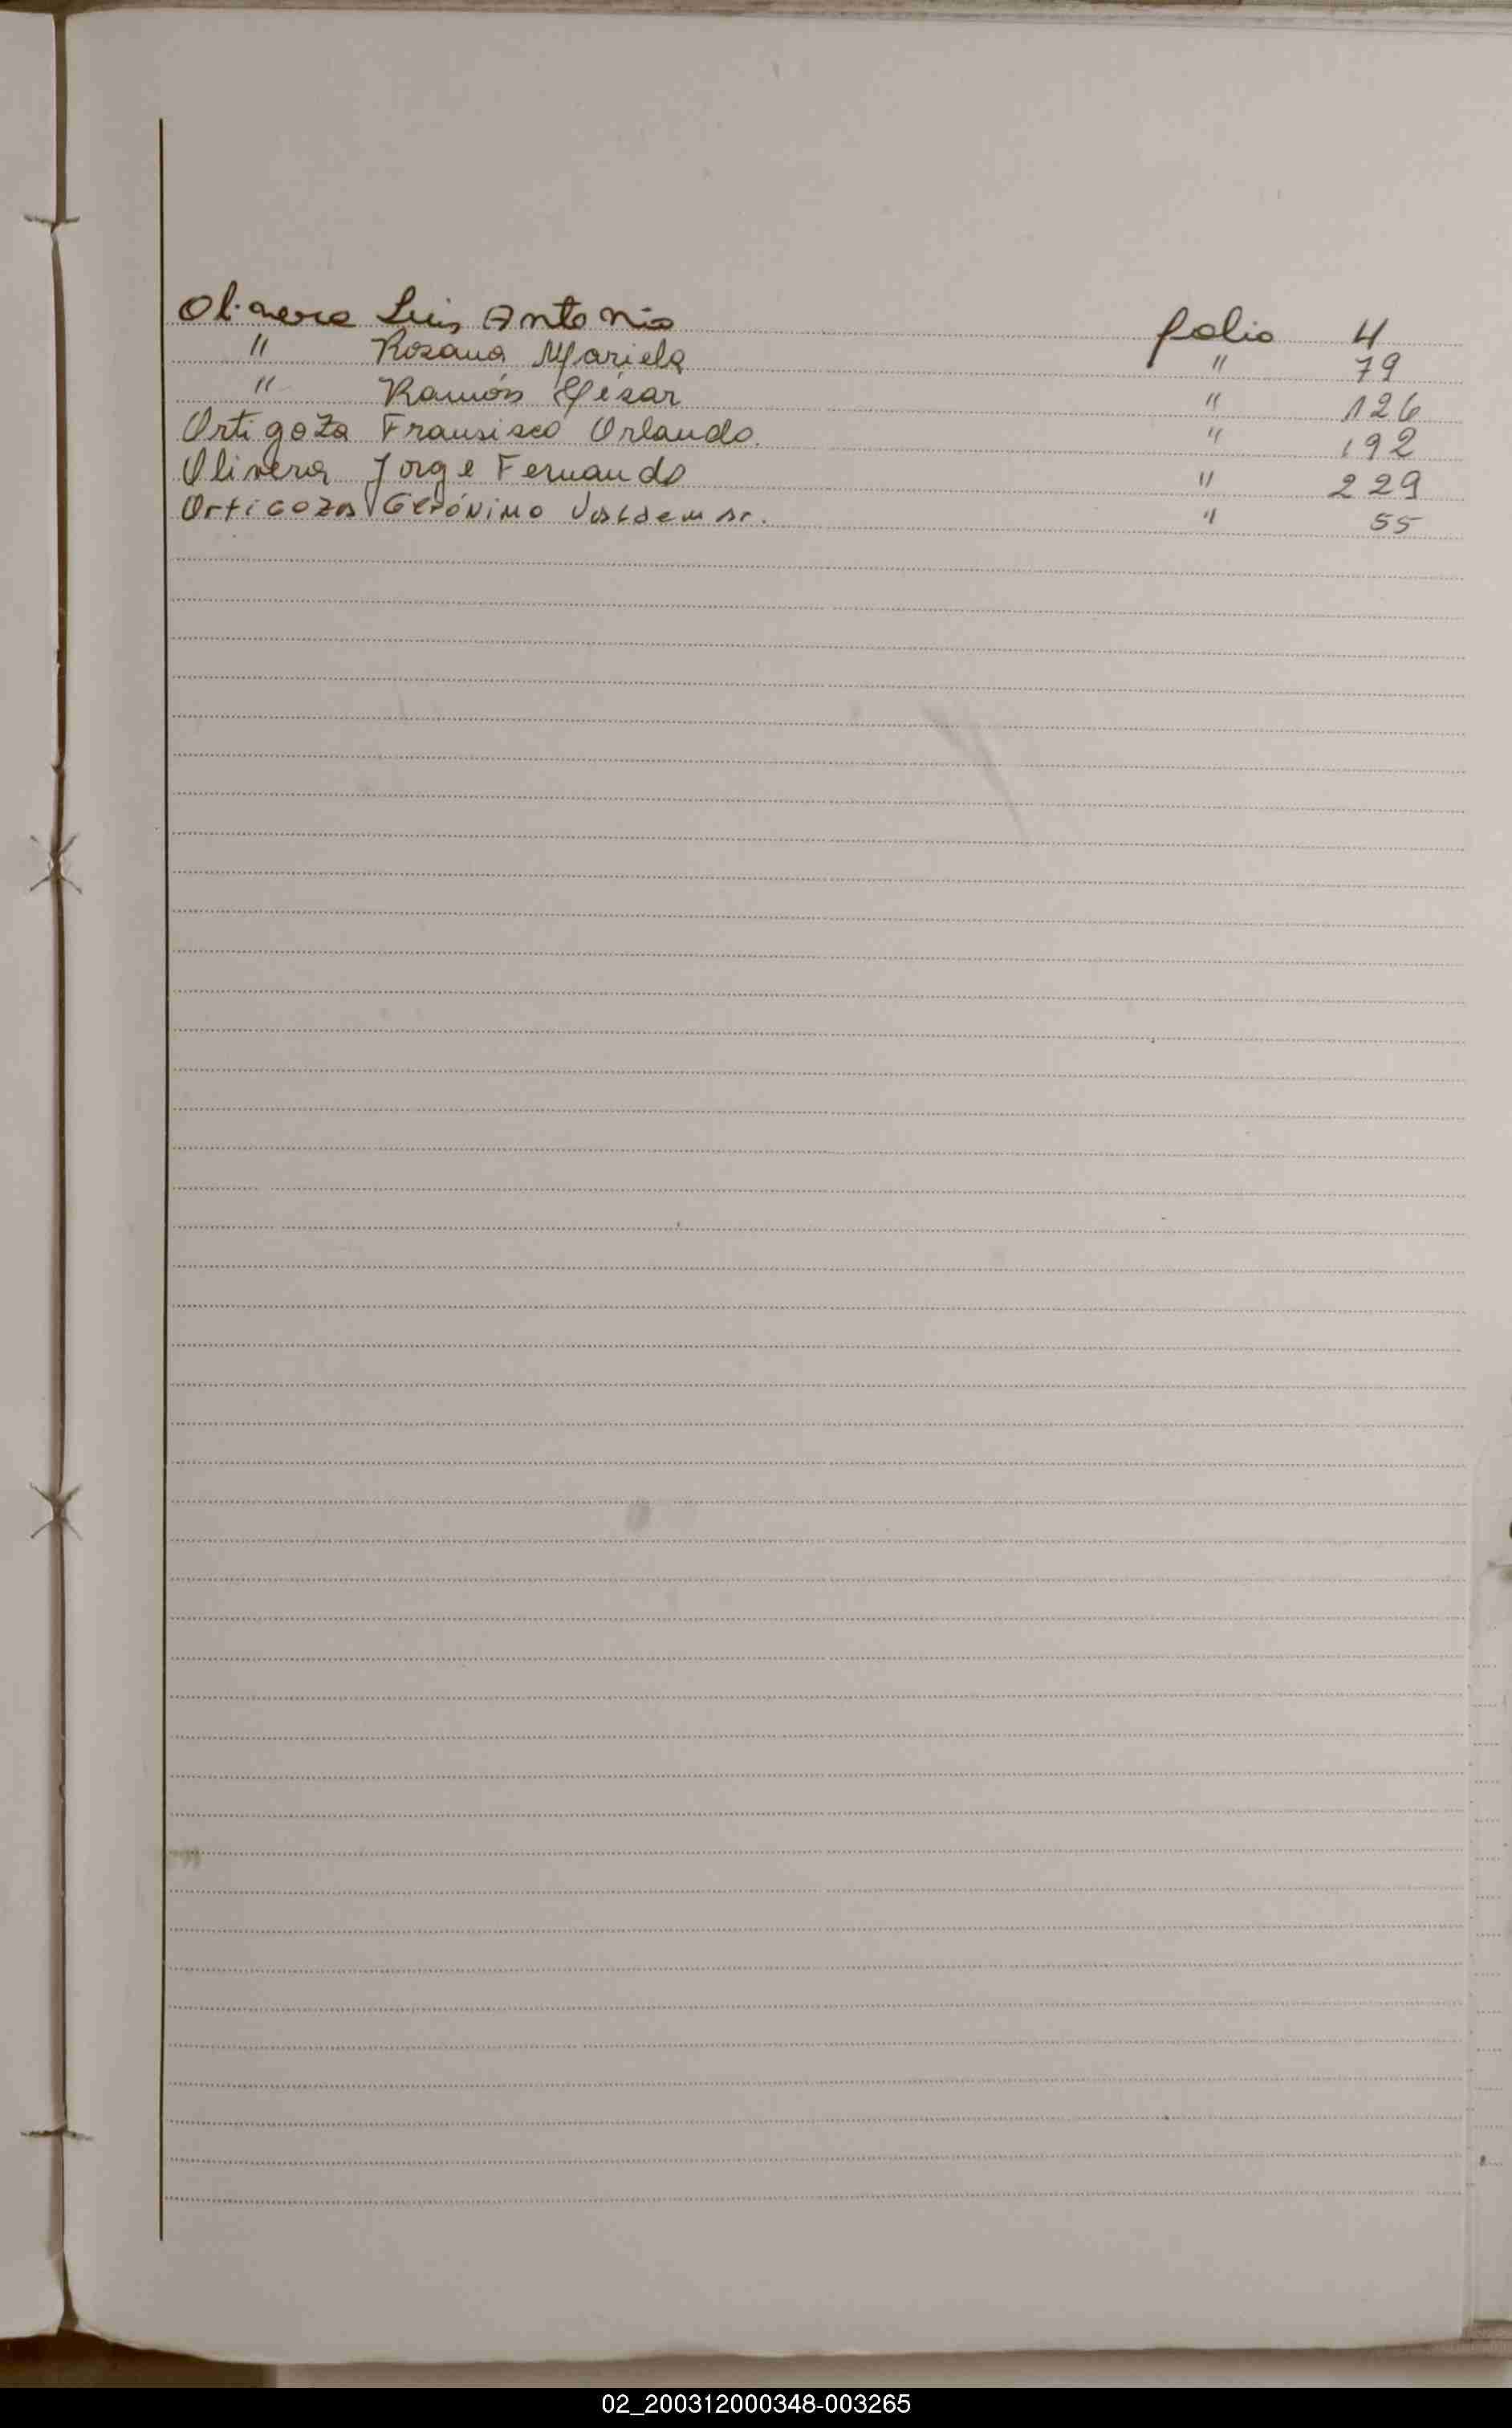 Olivera Luis Antonio folio 4
" Rosana Mariela " 79
" Ramón César " 126
Ortigoza Fransisco Orlando. " 192
Olivera Jorge Fernando " 229
Ortigoza Gerónimo Valdemar. " 55
02_200312000348-003265